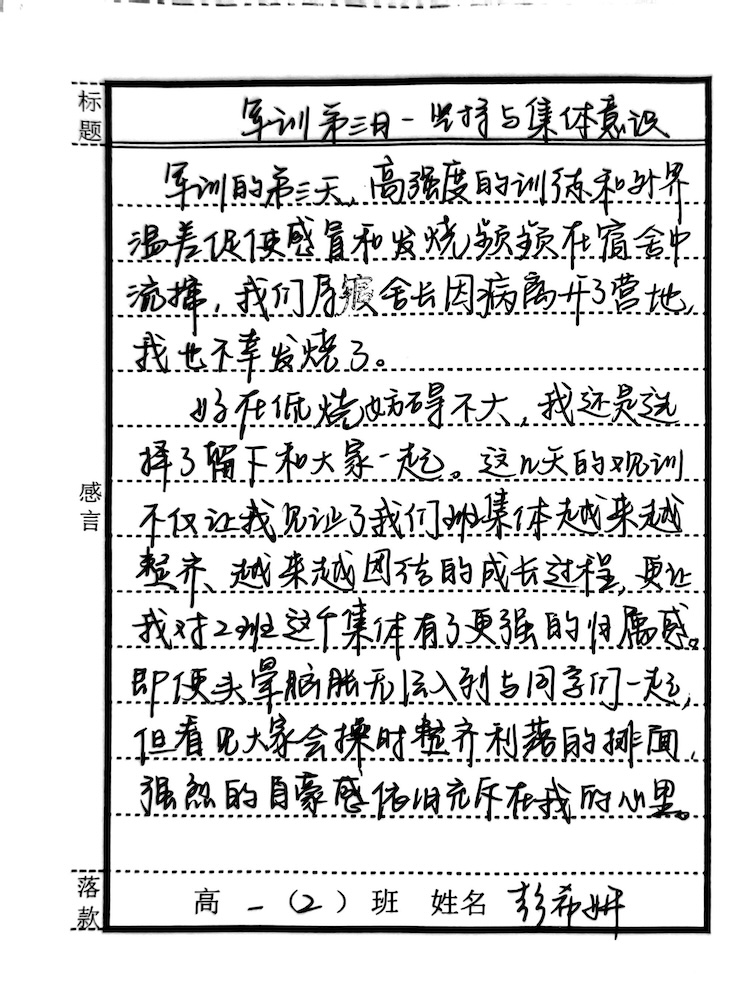 标题
军训第三日-坚持与集体意识
军训的第三天,高强度的训练和外界
温差促使感冒和发烧频频在宿舍中
流撺,我们寝舍长因病离开了营地,
我也不幸发烧了。
好在低烧妨碍不大,我还是选
择了留下和大家一起。这几天的观训
不仅让我见证了我们班集体越来越
整齐、越来越团结的成长过程,更让
我对2班这个集体有了更强的归属感。
即便头晕脑胀无法入列与同学们一起,
但看见大家会操时整齐利落的排面,
强烈的自豪感依旧充斥在我的心里。
感言
落款
高一(2)班 姓名 彭希妍